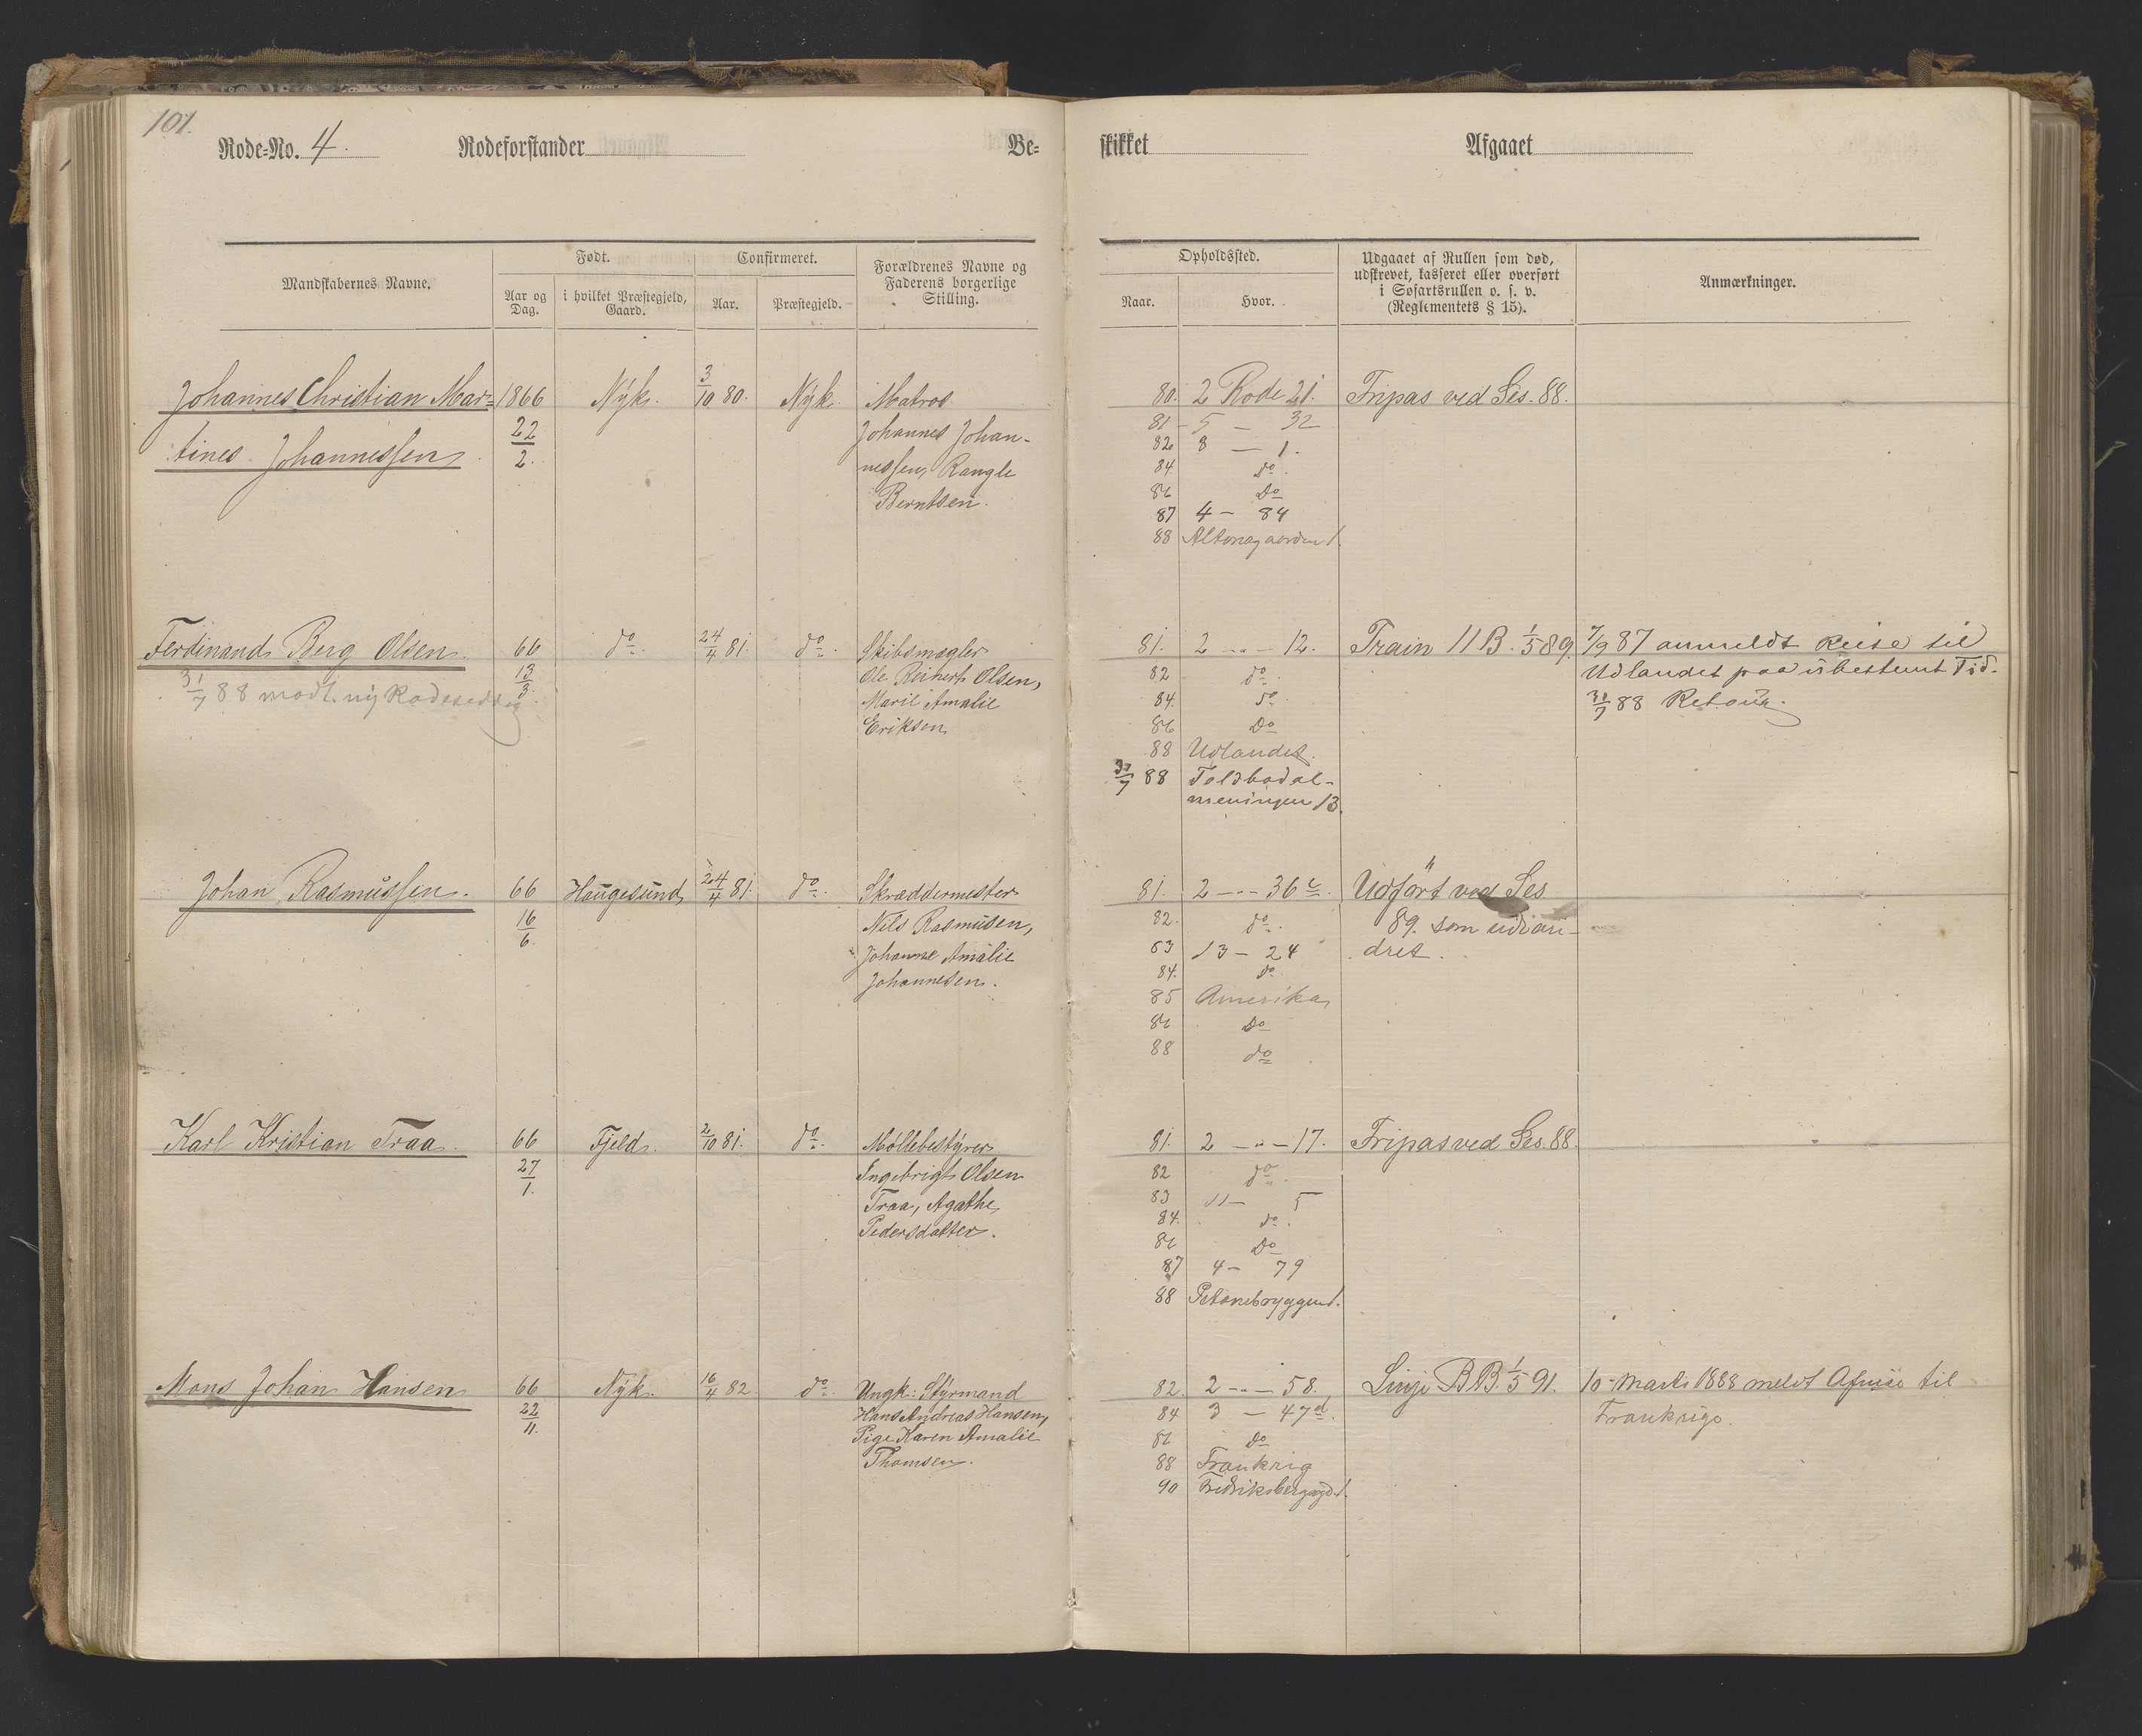 101.
Rode-No. 4. Rodeforstander Be-
skikket Afgaaet
Mandskabernes Navne. Født. Confirmeret. Forældrenes Navne og Faderens borgerlige Stilling.
Aar og Dag. i hvilket Præstegjeld, Gaard. Aar. Præstegjeld.
Opholdssted. Udgaaet af Rullen som død, udskrevet, kasseret eller overført i Søfartsrullen o. s. v. (Reglementets § 15). Anmærkninger.
Naar. Hvor.
Johannes Christian Mar= 1866 Nyk. 3/10 80. Nyk. Matros
tines Johannessen 22/2. Johannes Johan-
nessen, Rangle
Berntsen.
80. 2 Rode 21. Fripas ved Ses. 88.
81 - 5 — 32
82 8 — 1.
84. do.
86 Do
87 4 — 84
88 Altonagaarden 1.
Ferdinand Berg Olsen. 66 do. 24/4 81. do. Skibsmægler
31/7 88 modt. ny Rodeseddel 13/3. Ole Reinert Olsen,
Marie Amalie
Eriksen
81. 2 - " - 12. Train 11 B. 1/5 89. 7/9 87 anmeldt Reise til
82 do. Udlandet paa ubestemt Tid.
84. do. 31/7 88 Retour.
86 Do
88 Udlandet.
31/7 88 Toldbodal-
meningen 13.
Johan Rasmussen. 66 Haugesund 24/4 81. do. Skræddermester
16/6. Nils Rasmusen,
Johanne Amalie
Johannesen.
81. 2 - " - 36 c. Udført ved Ses.
82. do. 89. som udvan-
83 13 — 24 dret.
84. do
85 Amerika
86 Do
88 do
Karl Kristian Traa. 66 Fjeld. 2/10 81. do. Møllebestyrer
27/1. Ingebrigt Olsen
Traa, Agathe
Pedersdatter.
81. 2 - " - 17. Fripas ved Ses. 88.
82 do.
83 11 — 5
84. do.
86 Do
87 4 — 79
88
Mons Johan Hansen 66 Nyk. 16/4 82. do. Ungk: Styrmand
22/11. Hans Andreas Hansen,
Pige Karen Amalie
Thomsen.
82. 2 - " - 58. Linje BB. 1/5 91. 10 - Marts 1888 meldt Afreise til
84 3 — 47 a. Frankrige.
86 Do
88 Frankrig
90